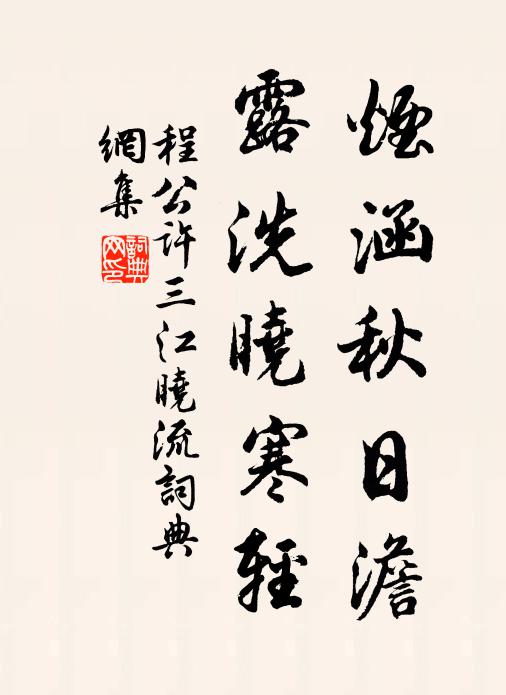 煙涵秋日澹
露洗曉寒輕
程公許三江曉流詞典
網集
詞典
网印